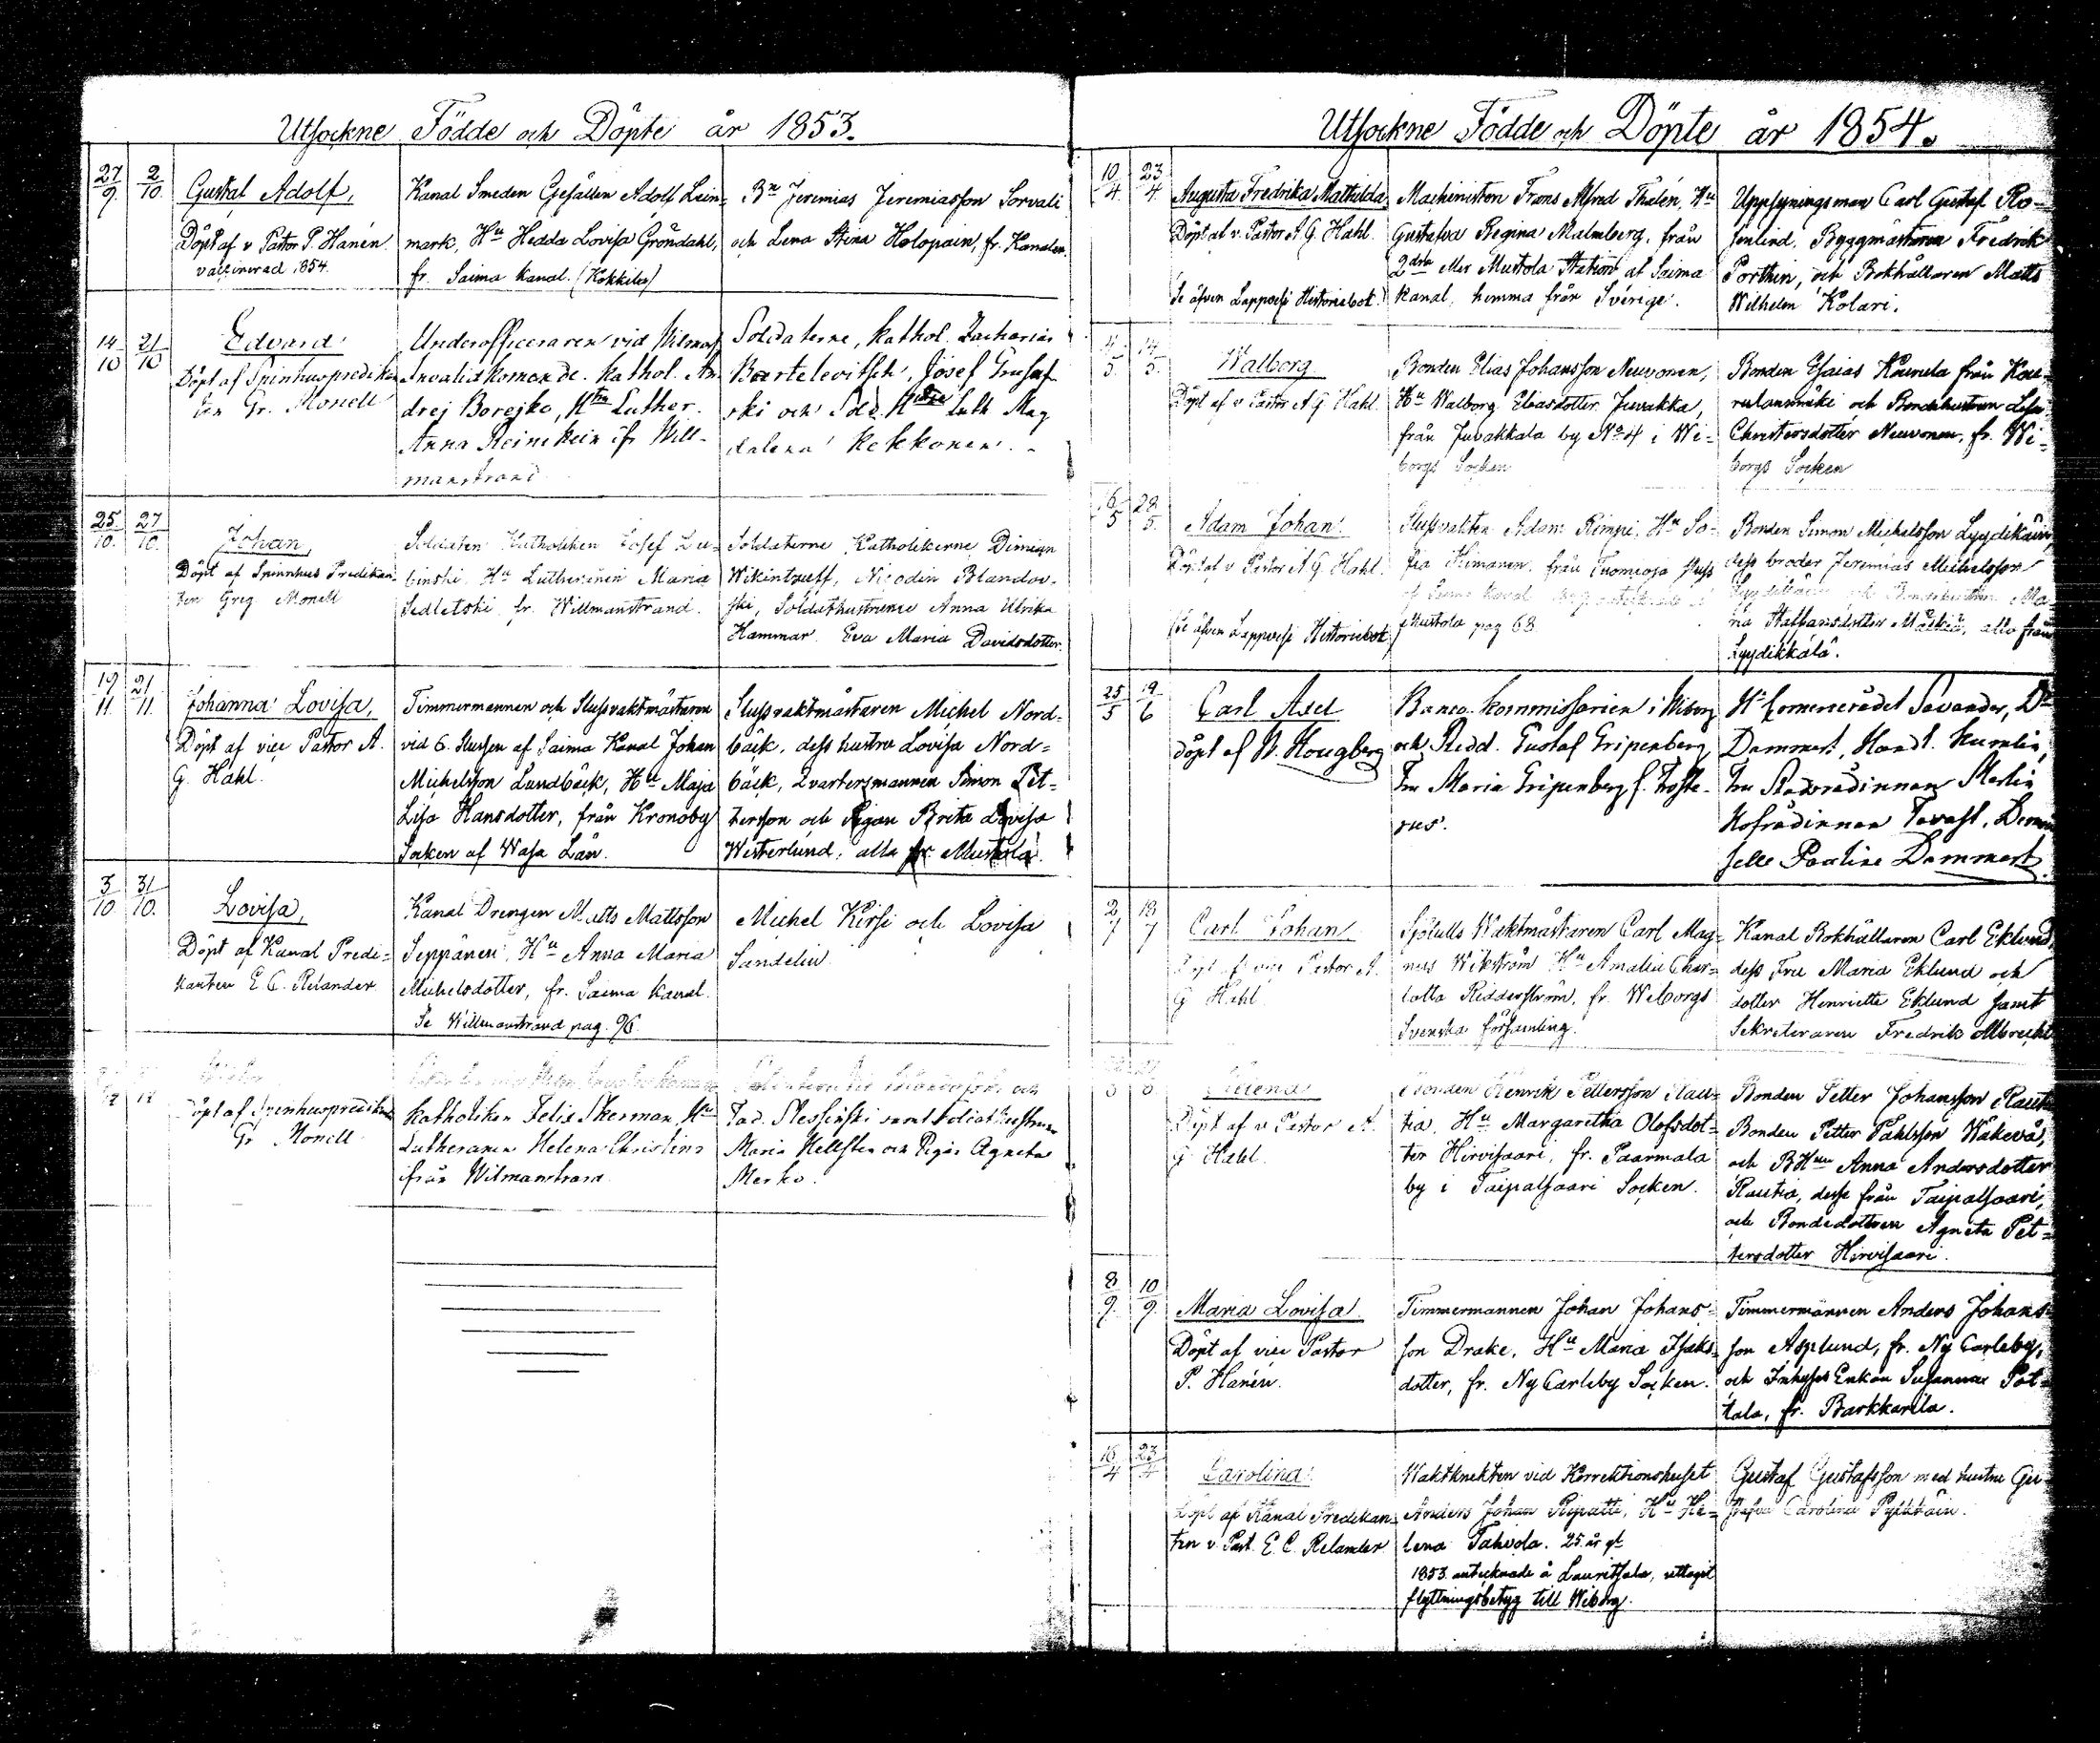 Utsockne Födde och Döpte år 1853.
27/9. 2/10.
Gustaf Adolf,
Döpt af v Pastor P. Hanén
vaccinerad 1854.
Kanal Smeden Gesällen Adolf Lein-
mark, Hu Hedda Lovisa Gröndahl,
fr. Saima Kanal. (Kokkila)
Bn Jeremias Jeremiasson Sorvali
och Lena Stina Holopain, fr. Kanalen.
14/10 21/10
Edvard
Döpt af Spinhuspredikan
ten Gr. Monell
Underofficeraren vid Wilmans
Invalidkomende. Kathol. An-
drej Borejko, Htru Luther.
Anna Reinikain ifr Will-
manstrand
Soldaterne, Kathol. Zacharias
Bartelevitsch, Josef
ski och Sold. Hustru Luth Mag
dalena Kekkonen.
25/10. 27/10.
Johan,
Döpt af Spinnhus Predikan-
ten Greg. Monell
Soldaten Katholiken Josef Lu-
binski Hu Lutheranen Maria
Sedletski fr. Willmanstrand.
Soldaterne Katholikerne Dimian
Wikintzeff, Nicodin Blandov-
ski, Soldathustrurne Anna Ulrika
Hammar Eva Maria Davidsdotter.
19/11. 21/11.
Johanna Lovisa,
Döpt af vice Pastor A.
G. Hahl.
Timmermannen och Slussvaktmästaren
vid 6. Slussen af Saima Kanal Johan
Michelsson Lundbäck, Hu Maja
Lisa Hansdotter, från Kronoby
Socken af Wasa Län.
Slussvaktmästaren Michel Nord-
bäck, dess hustru Lovisa Nord-
bäck, Qvartersmannen Simon Pet-
tersson och Pigan Brita Lovisa
Westerlund, alla fr. Mustola.
3/10 31/10.
Lovisa,
Döpt af Kanal Predi-
kanten E. C. Relander
Kanal Drengen Matts Mattsson
Seppänen, Hu Anna Maria
Michelsdotter, fr. Saima Kanal.
Se Willmanstrand pag. 96.
Michel Kirsi och Lovisa
Sandelin
Döpt af Spinhuspredikan
Gr Monell
Katholiken Felix Skerman Hu
Lutheranen Helena Christina
ifrån Wilmanstrand.
och
Tad. Slessinski samt Soldat hustrun
Maria Hellsten och Pigan Agneta
Merko.
Utsockne Födde och Döpte år 1854.
10/4. 23/4.
Augusta Fredrika Mathilda,
Döpt af v. Pastor A G. Hahl.
Se äfven Lappvesi Historiebok.
Machinisten Frans Alfred Thelén, Hu
Gustafva Regina Malmberg, från
2dra eller Mustola Station af Saima
Kanal, hemma från Sverige.
Uppsyningsman Carl Gustaf Ro-
senlind, Byggmästaren Fredrik
Porthin, och Bokhållaren Matts
Wilhelm Kolari.
4/5. 14/5.
Walborg
Döpt af v Pastor A G. Hahl.
Bonden Elias Johansson Neuvonen,
Hu Walborg Eliasdotter Juvakka,
från Juvakkala by No 4 i Wi-
borgs Socken
Bonden Esaias Kounela från Kou-
relanmäki och Bondehustrun Lisa
Christersdotter Neuvonen, fr. Wi-
borgs Socken
16/5 28/5.
Adam Johan.
Döpt af v Pastor A G. Hahl.
Se äfven Lappvesi Historiebok.
Slussvakten Adam Rimpi, Hu So-
fia Himanen, från Tuomioja sluss
af Saima Kanal
Mustola pag 68.
Bonden Simon Michelsson Lyydikäin,
dess broder Jeremias Michelsson
Lyydikäin och Bondehustrun Ma-
ria Staffansdotter Mäskiä, alla från
Lyydikkälä.
25/5 19/6
Carl Axel
döpt af W. Hougberg
Banco Kommissarien i Wiborg
och Ridd. Gustaf Gripenberg,
Fru Maria Gripenberg f.
rus.
Hr Commercerådet Savander, Dr
Dammert, Handl. Kumlin,
Fru Stadsrådinnan Martin
Hofrådinnan Tavast, Demoi
selle Pauline Dammert.
2/7 18/7
Carl Johan
Döpt af vice Pastor A.
G Hahl.
Sjötulls Waktmästaren Carl Mag-
nus Wikström Hu Amalia Char-
lotta Ridderström, fr. Wiborgs
Svenska församling.
Kanal Bokhållaren Carl Eklund,
dess Fru Maria Eklund och
dotter Henriette Eklund samt
Sekreteraren Fredrik Albrecht
Helena
Döpt af v Pastor A.
G Hahl.
Bonden Henrik Pettersson Rau-
tia, Hu Margaretha Olofsdot-
ter Hirvisaari, fr. Paarmala
by i Taipalsaari Socken.
Bonden Petter Johansson Rautia
Bonden Petter Pahlsson Wäkevä,
och BHun Anna Andersdotter
Rautia, desse från Taipalsaari,
och Bondedottren Agneta Pet-
tersdotter Hirvisaari.
8/9. 10/9.
Maria Lovisa.
Döpt af vice Pastor
P. Hanén.
Timmermannen Johan Johans-
son Drake, Hu Maria Isaks-
dotter, fr. Ny Carleby Socken.
Timmermannen Anders Johans-
son Asplund, fr. Ny Carleby,
och Inhyses Enkan Susanna Pat-
tala, fr. Barkkarila.
16/4 23/4
Carolina.
Döpt af Kanal Predikan-
ten v. Past. E. C. Relander
Waktknekten vid Korrektionshuset
Anders Johan Ripatti, Hu He-
lena Tahvola. 25 år gl.
1853 antecknade å Lauritsala, uttagit
flyttningsbetyg till Wiborg.
Gustaf Gustafsson med hustru Gu-
stafva Carolina Pylkkäin.